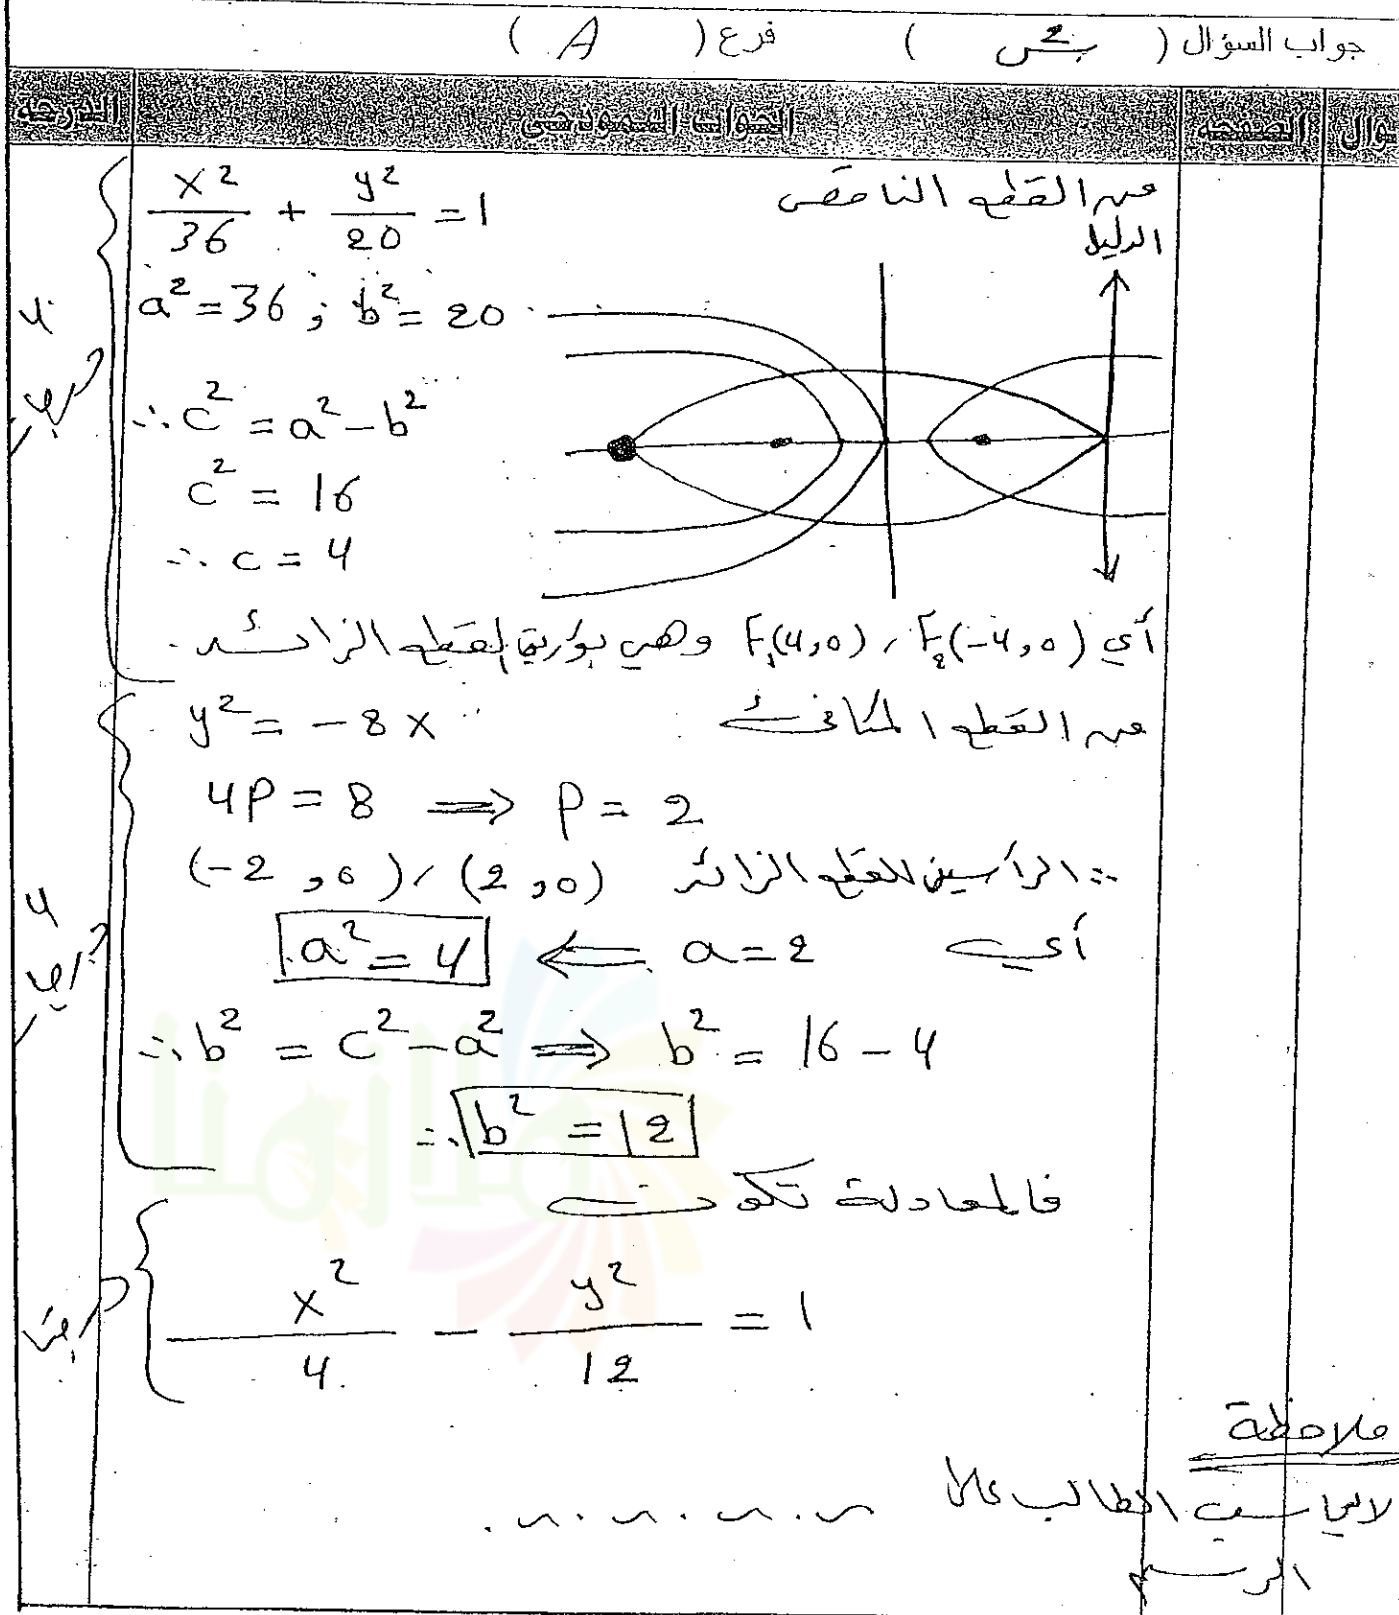 جواب السؤال ( س2 ) فرع ( A )
الصفحة الجواب النموذجي الدرجة
من القطع الناقص
x²/36 + y²/20 = 1
الدليل
a² = 36 ; b² = 20
∴ c² = a² − b²
c² = 16
∴ c = 4
أي F₁(4,0) , F₂(-4,0) وهي بؤرتا القطع الزائد .
من القطع المكافئ y² = − 8x
4P = 8 ⟹ P = 2
∴ الرأسين للقطع الزائد (2,0) , (-2,0)
أي a = 2 ⟸ a² = 4
∴ b² = c² − a² ⟹ b² = 16 − 4
∴ b² = 12
فالمعادلة تكون
x²/4 − y²/12 = 1
ملاحظة
لا يحاسب الطالب على
الرسم